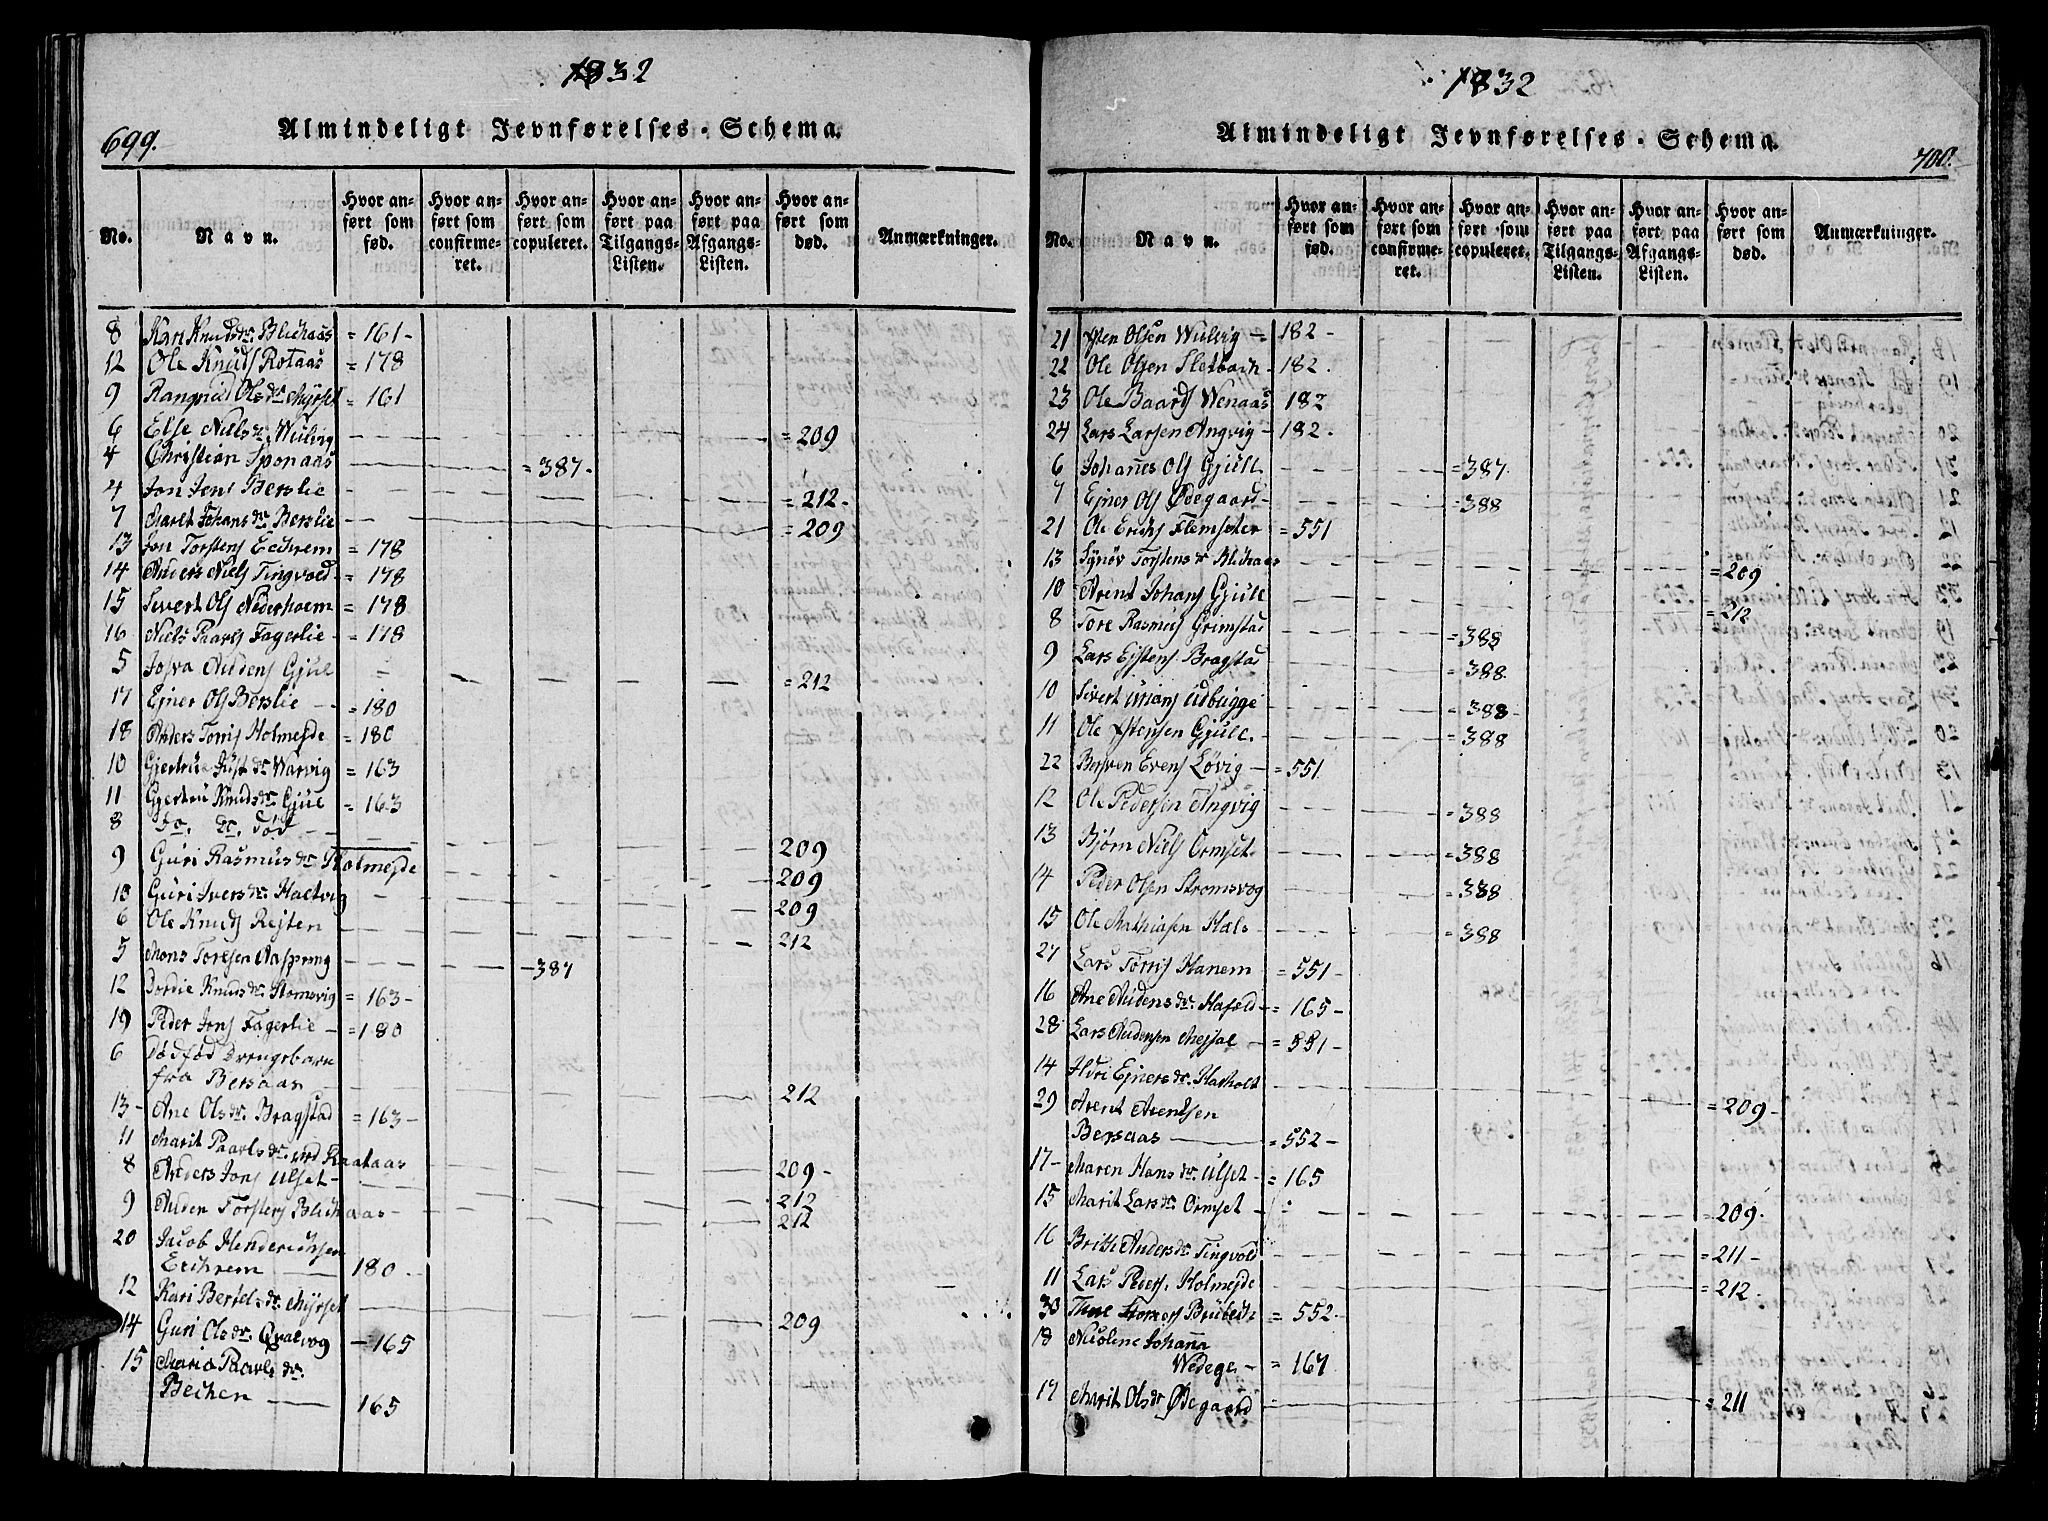 1832
Almindeligt Jevnførelses-Schema.
699.
No.
Navn.
Hvor anført som fød.
Hvor anført som confirmeret.
Hvor anført som copuleret.
Hvor anført paa Tilgangs-Listen.
Hvor anført paa Afgangs-Listen.
Hvor anført som død.
Anmærkninger.
8 Kari Knudsdr. Blichaas = 161 -
12 Ole Knuds Rotaas = 178
9 Rangnild Olsdr. Myrset = 161
6 Else Nielsdr. Wulvig = 209
4 Christian Sponaas = 387.
4 Jon Jens Berslie = 212 -
7 Maret Johansdr. Berslie = 209
13 Jon Torstens Echrem = 178
14 Anders Niels Tingvold = 178
15 Sivert Ols Nederhoem = 178
16 Niels Paarls Fagerlie - = 178
5 Audens Gjul = 212
17 Ejner Ols Berslie = 180
18 Anders Torris Holmejde = 180
10 Gjertrue dr. Warvig = 163
11 Gjertru Knudsdr. Gjul = 163
8 Do. dr. Død 209
9 Guri Rasmusdr. Holmejde 209
10 Guri Iversdr. Haltvig 209
6 Ole Knuds Rejten 212
5 Mons Toresen Aaspring - 387
12 Dordie Knudsdr. Stomsvig = 163 -
19 Peder Jons Fagerlie - = 180
6 Dødfød Drengebarn
fra Bersaas 212
13 - Ane Olsdr. Bragstad = 163 -
11 Marit Paarlsdr. Raataas 209 -
8 Anders Jons Ulset 212
9 Auden Torstens Blichaas 212
20 Jacob Henderichsen
Echrem 180
12 Kari Bertelsdr. Myrset 209
14 Guri Olsdr. Qvalvog - 165
15 Maria Paarlsdr.
Bechen 165
1832
Almindeligt Jevnførelses-Schema.
700.
No.
Navn.
Hvor anført som fød.
Hvor anført som confirmeret.
Hvor anført som copuleret.
Hvor anført paa Tilgangs-Listen.
Hvor anført paa Afgangs-Listen.
Hvor anført som død.
Anmærkninger.
21 Olsen Wulvig - = 182 -
22 Ole Olsen Sletbach - 182.
23 Ole Baards Wenaas 182
24 Lars Larsen Angvig - 182.
6 Johanes Ols Gjull = 387.
7 Ejner Ols Ødegaard = 388
21 Ole Erichs Flemsæter = 551
13 Synøv Torstensdr. Blichaas = 209
10 Arent Johans Gjull = 212
8 Tore Rasmus Grimstad = 388
9 Lars Ejstens Bragstad = 388.
10 Sivert Udbugge = 388
11 Ole Østensen Gjull. = 388
22 Bersven Evens Løvig - = 551.
12 Ole Pedersen Angvig = 388
13 Bjørn Niels Ormset = 388
14 Peder Olsen Stromsvog = 388
15 Ole Mathiasen Hals = 388
27 Lars Torris Hanem = 551 -
16 Ane Audensdr. Hafold = 165 -
28 Lars Audensen Mejsal = 551 -
14 Ejnersdr. Harholt = 209 -
29 Arent Arentsen
Bersaas = 552 -
17 - Maren Hansdr. Ulset - = 165
15 Marit Larsdr. Ormset = 209.
16 Brith Andersdr. Tingvold = 211 -
11 Lars Peders. Holmejde = 212.
30 = 552.
18 Nicoline Johana
Wedege - = 167
17 Marit Olsdr. Ødegaard = 211